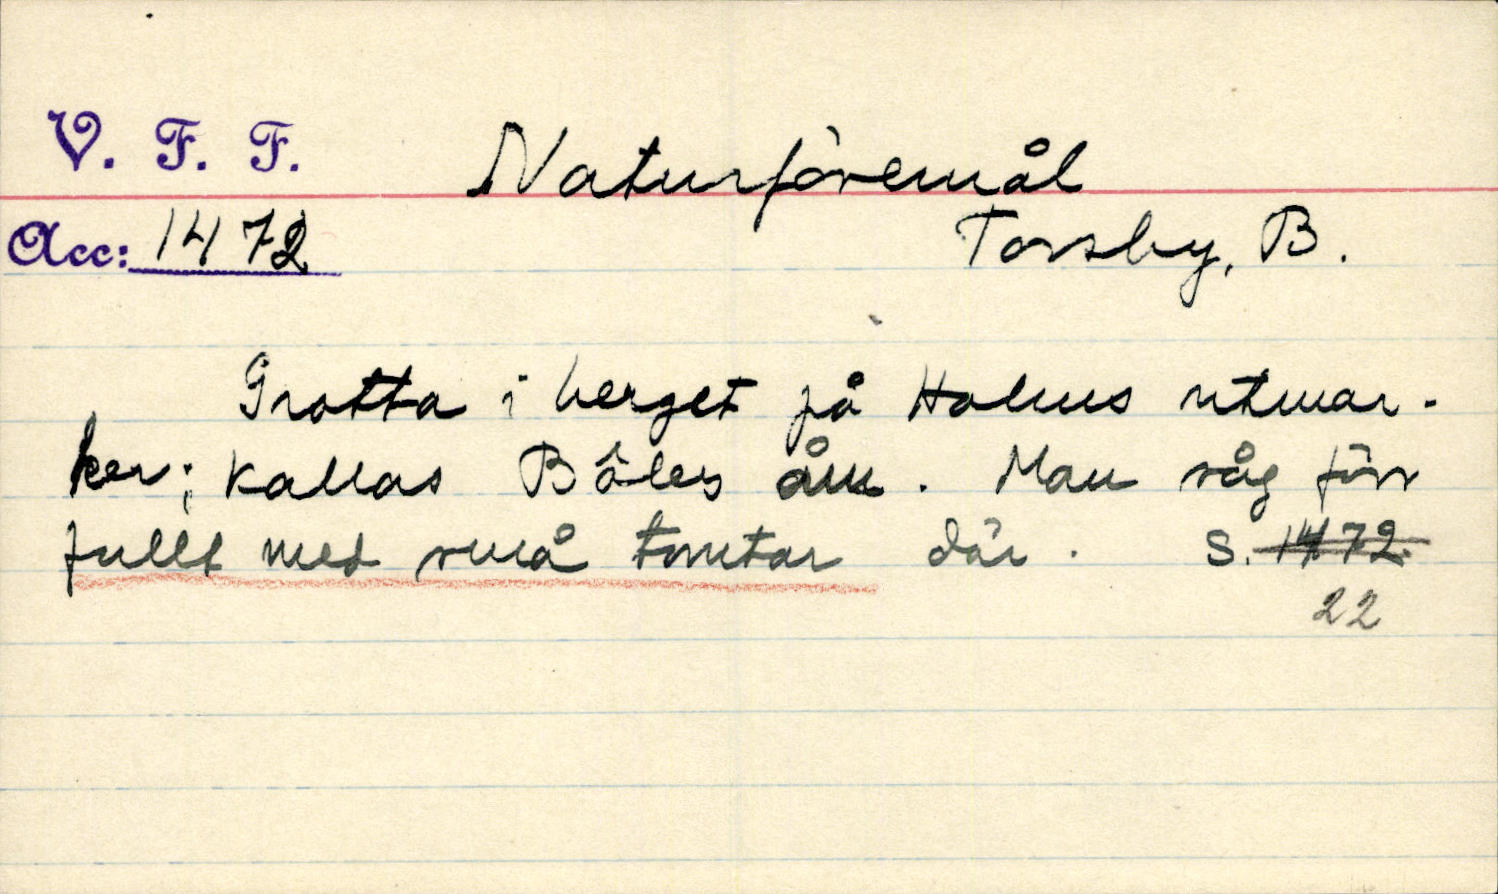 V. F. F. Naturföremål
Acc: 1472 Torsby, B.
Grotta i berget på Holms utmar-
ker; kallas Båles åm. Man såg förr
fullt med små tomtar där. S. 1472
22